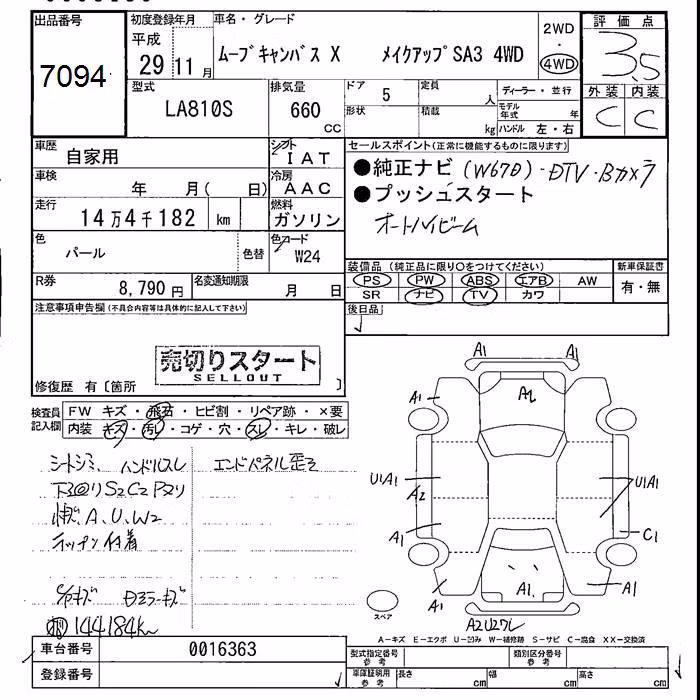 出品番号 初度登録年月 車名・グレード 評価点
7094 平成 29 11月 ムーブキャンバス X メイクアップSA3 4WD 2WD・4WD 3.5
外装 内装
C C
型式 排気量 ドア 定員 ディーラー・並行
LA810S 660 CC 5 人
形状 積載 kg モデル年式 年
ハンドル 左・右
車歴 自家用 シフト IAT
車検 年 月( 日) 冷房 AAC
走行 14万4千182 km 燃料 ガソリン
色 パール 色替 色コード W24
R券 8,790円 名変通知期限 月 日
セールスポイント(正常に機能するものに限ります)
●純正ナビ(W67D)・DTV・Bカメラ
●プッシュスタート
オートハイビーム
装備品 (純正品に限り○をつけてください) 新車保証書
PS PW ABS エアB AW 有・無
SR ナビ TV カワ
後日品
注意事項申告欄(不具合内容等は具体的に記入して下さい)
売切りスタート
SELLOUT
修復歴 有〔箇所 〕
検査員記入欄 FW キズ・飛石・ヒビ割・リペア跡・×要
内装 キズ・汚レ・コゲ・穴・スレ・キレ・破レ
シートシミ、ハンドルスレ エンドパネル歪ミ
S2C2
A、U、W2
付着
Dミラーキズ
144184km
A1 A1
A1 A2
U1A1 A2 U1A1
A1 C1
A1 A1 A1
スペア A2U2ワレ
A-キズ E-エクボ U-凹み W-補修跡 S-サビ C-腐食 XX-交換済
車台番号 0016363
登録番号
型式指定番号 参考 類別区分番号 参考
車庫証明用 参考 長さ cm 幅 cm 高さ cm